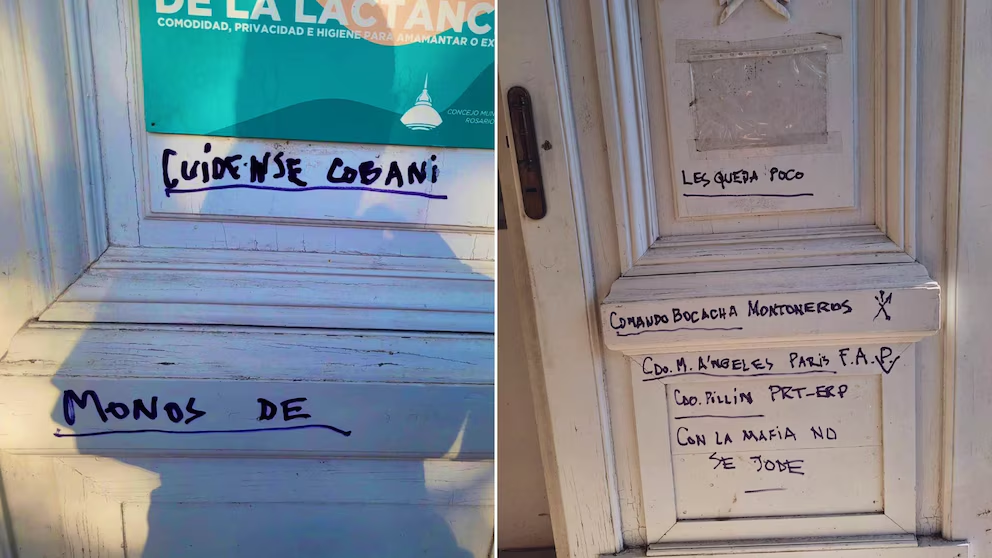 DE LA LACTANC
COMODIDAD, PRIVACIDAD E HIGIENE PARA AMAMANTAR O EX
CONCEJO MUN
ROSARIO
CUIDENSE COBANI
MONOS DE
LES QUEDA POCO
COMANDO BOCACHA MONTONEROS
CDO. M. ÁNGELES PARIS F.A.P.
CDO. PILLIN PRT-ERP
CON LA MAFIA NO
SE JODE